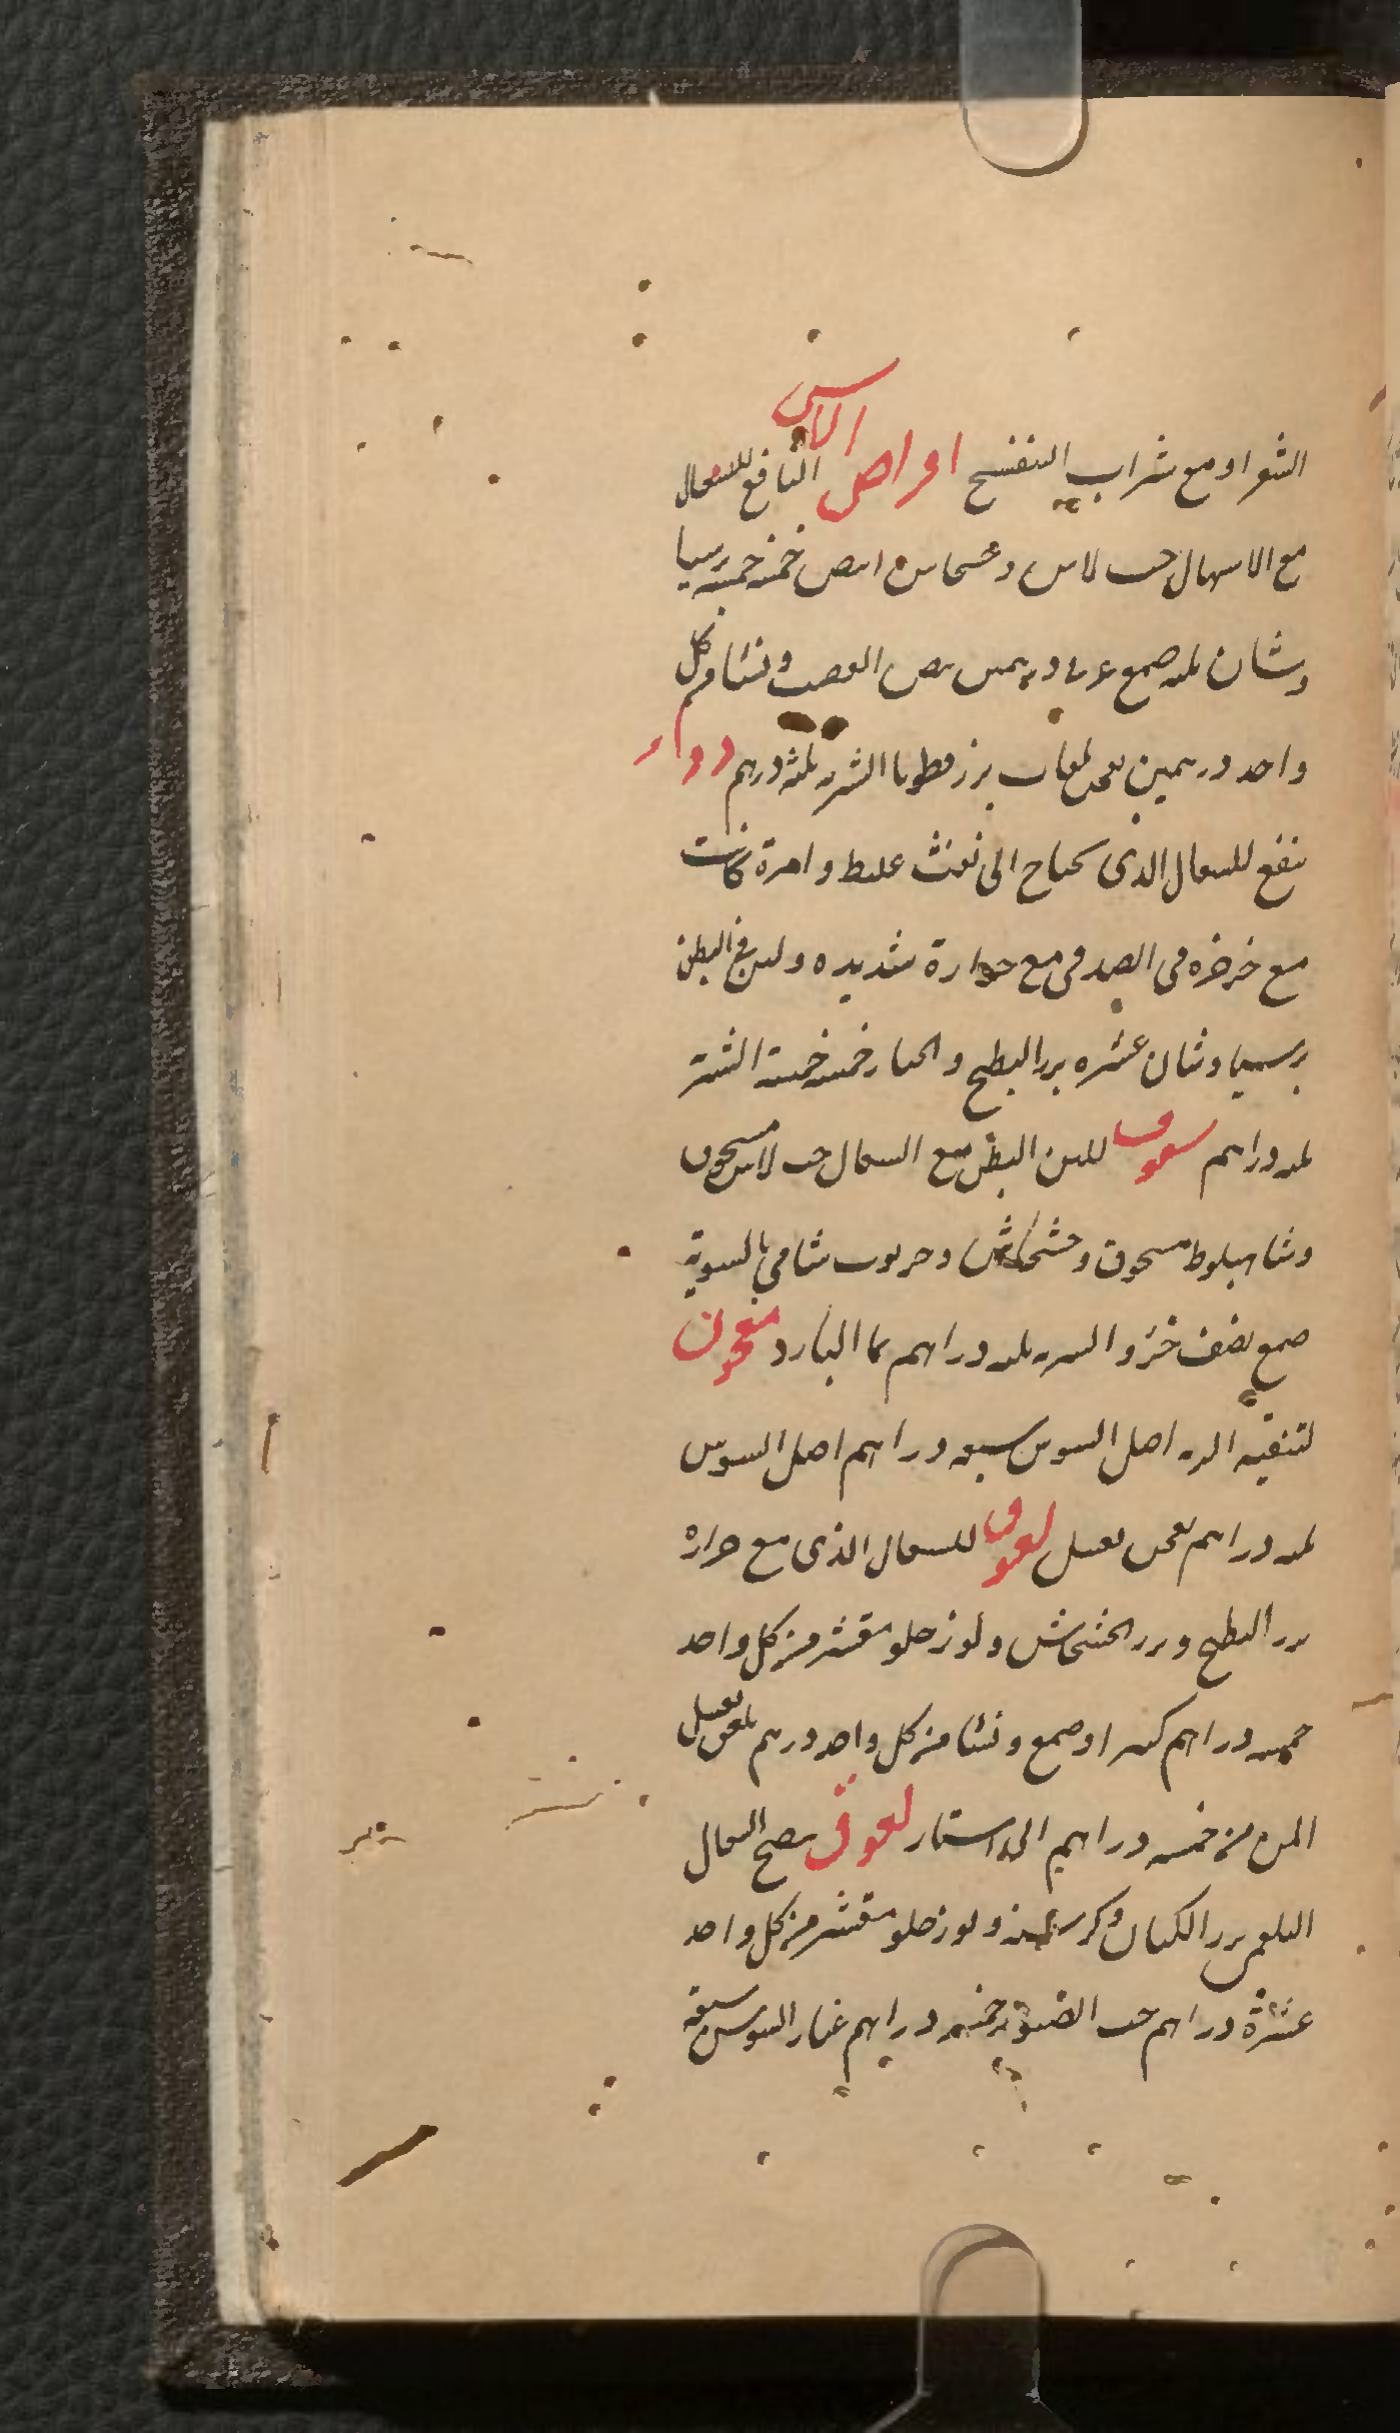 الشعر او مع شراب البنفسج اقراص الاس النافع للسعال
مع الاسهال حب الاس وخشخاش ابيض خمسه خمسه
صمع عربى درهمين القصب ونشا من كل
واحد درهمين يعجن بلعاب بزر قطونا الشربه ثلثه درهم دواء
ينفع للسعال الذى يحتاج الى نفث غليظ وامرة كانت
مع خرخره فى الصدر فى مع حرارة شديده ولين فى البطن
عشره بزر البطيخ والخيار خمسه خمسة
ثلثه دراهم سفوف للين البطن مع السعال حب الاس مسحوق
وشاهبلوط مسحوق وخشخاش وخرنوب شامي بالسوية
صمع نصف جزؤ الشربه ثلثه دراهم بما البارد معجون
لتنقيه الريه اصل السوسن سبعه دراهم اصل السوس
ثلثه دراهم يعجن بعسل لعوق للسعال الذى مع حرارة
بزر البطيخ وبزر الخشخاش ولوز حلو مقشر من كل واحد
خمسه دراهم كثيرا وصمع ونشا من كل واحد درهم يلعق بعسل
من خمسه دراهم الى استار لعوق السعال
البلغمى بزر الكتان ولوز حلو مقشر من كل واحد
عشرة دراهم حب الصنوبر خمسه دراهم السوس سبعه